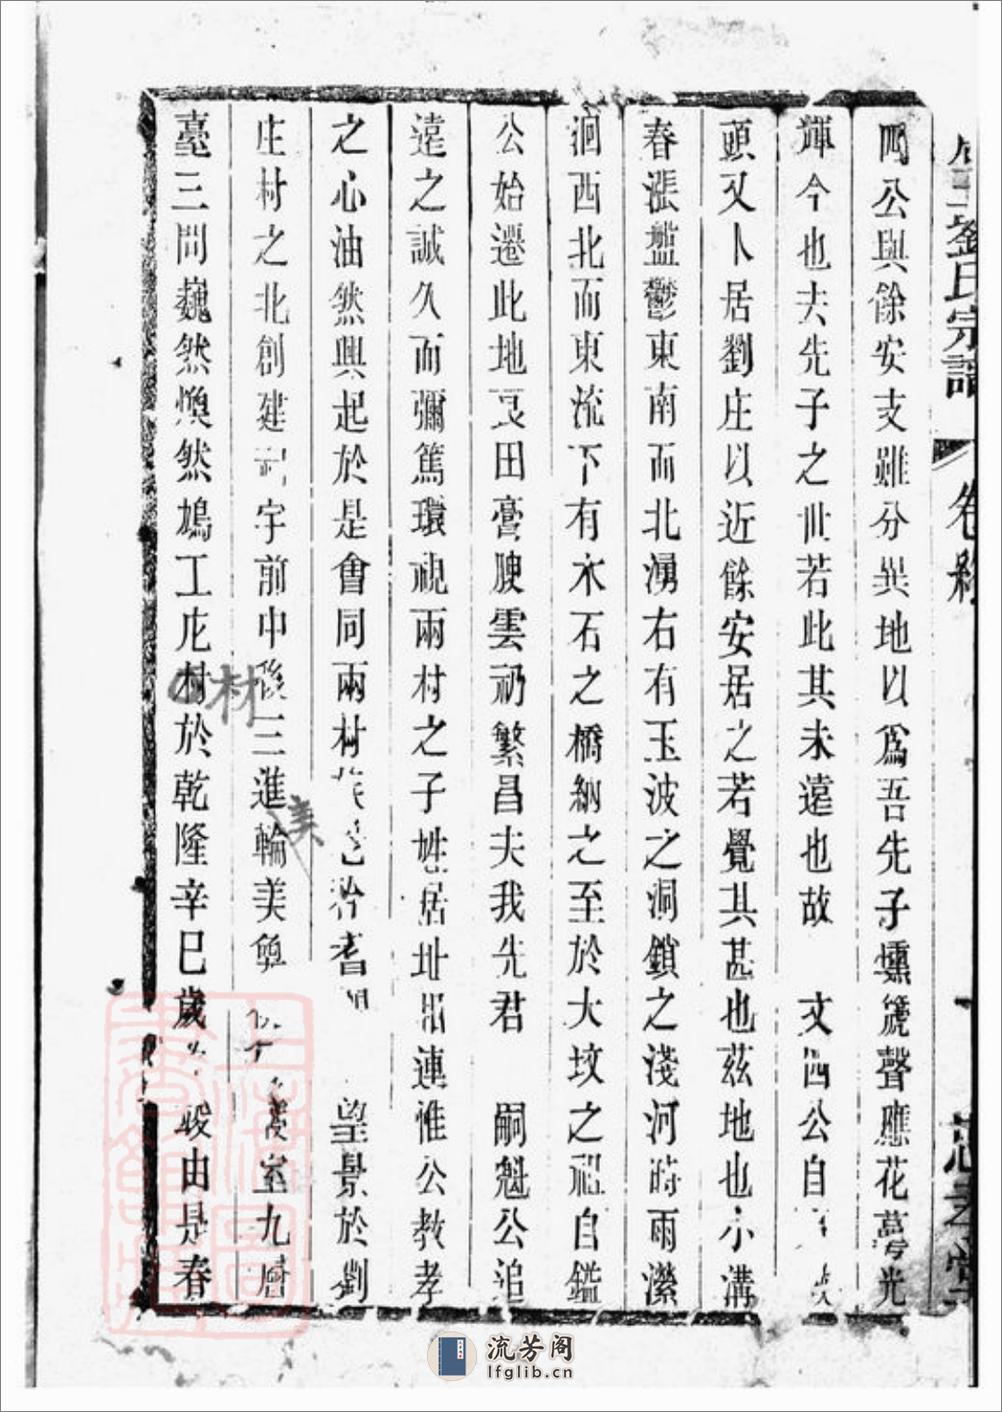 公與餘安支雖分異地以爲吾先子壎篪聲應花萼光
輝今也夫先子之世若此其未遠也故 文四公自
頭又卜居劉庄以近餘安居之若覺其甚也茲地也小溝
春漲艦鬱東南而北湧右有玉波之洞鎖之淺河時雨瀠
洄西北而東流下有水石之橋納之至於大坟之祖自鑑
公始遷此地艮田膏腴雲礽繁昌夫我先君 嗣魁公追
遠之誠久而彌篤環視兩村之子姓居址毗連惟公教孝
之心油然興起於是會同兩村 耆 望景於劉
庄村之北創建祠宇前中後三進輪美 室九層
臺三間巍然煥然鳩工庀村於乾隆辛巳歲 由是春
劉氏宗譜 卷終
材
美
流芳阁
lfglib.cn